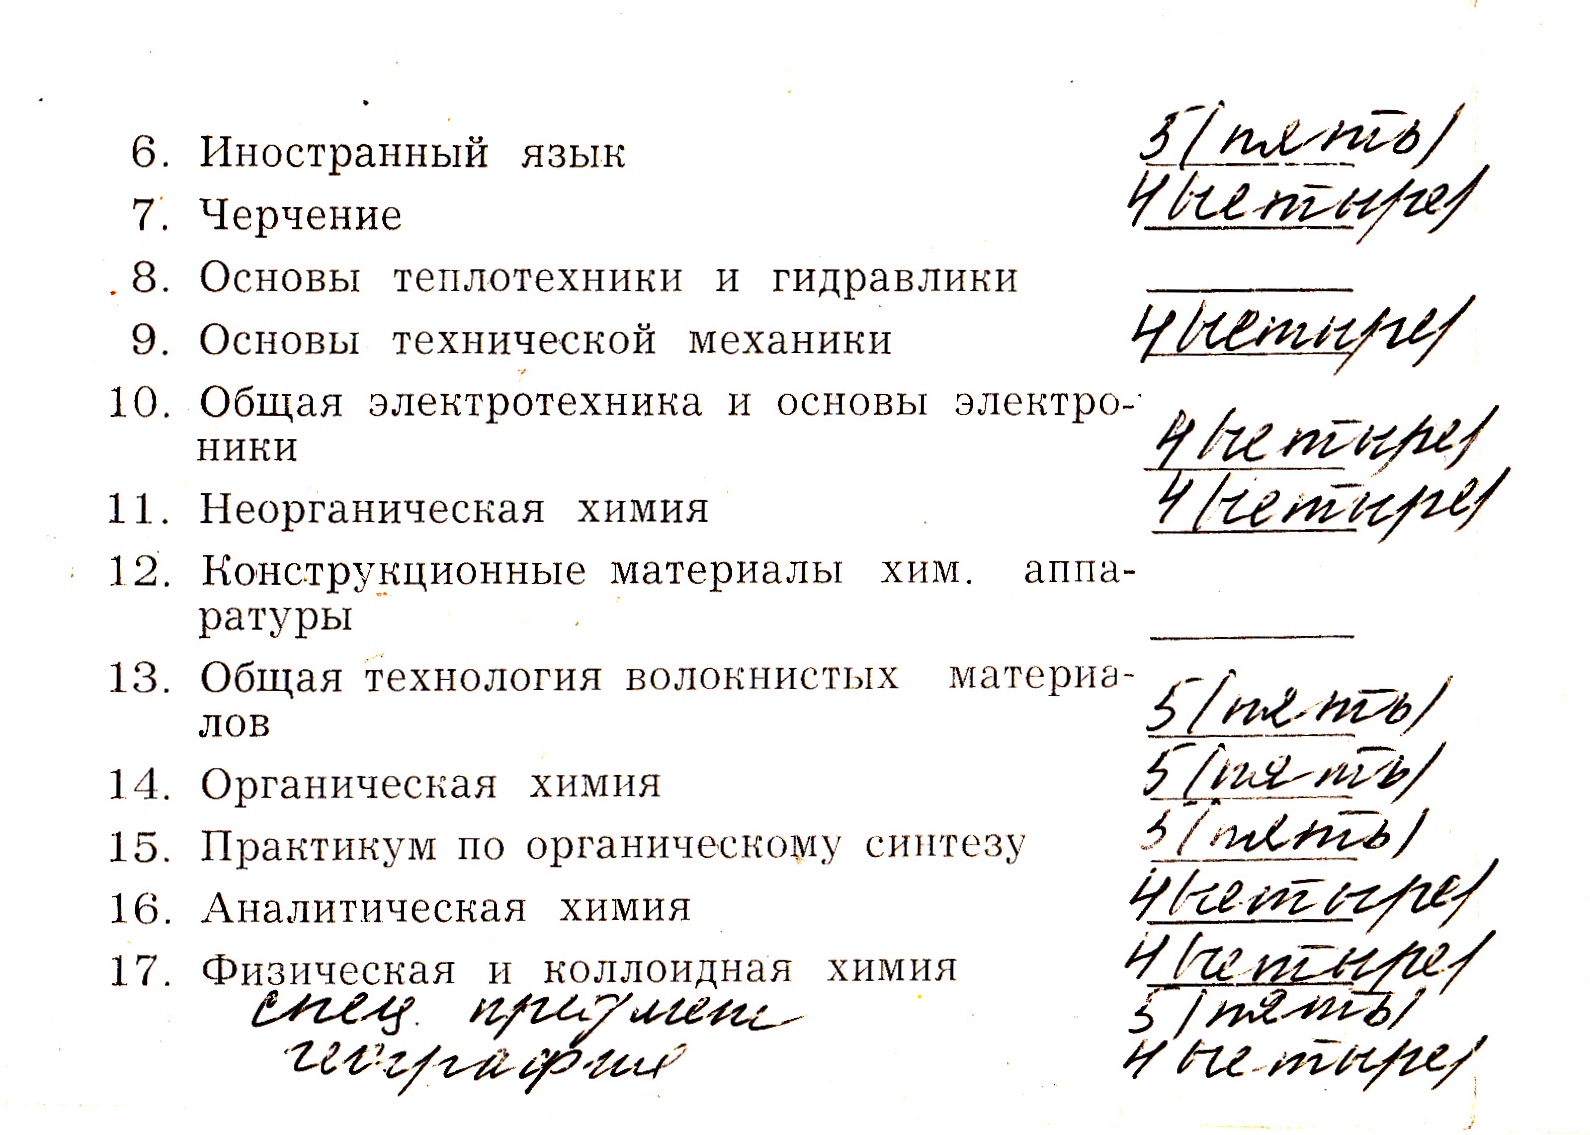 6. Иностранный язык 5 (пять)
7. Черчение 4 (четыре)
8. Основы теплотехники и гидравлики
9. Основы технической механики 4 (четыре)
10. Общая электротехника и основы электро-
ники 4 (четыре)
11. Неорганическая химия 4 (четыре)
12. Конструкционные материалы хим. аппа-
ратуры
13. Общая технология волокнистых материа-
лов 5 (пять)
14. Органическая химия 5 (пять)
15. Практикум по органическому синтезу 5 (пять)
16. Аналитическая химия 4 (четыре)
17. Физическая и коллоидная химия 4 (четыре)
спец. предмет 5 (пять)
география 4 четыре)